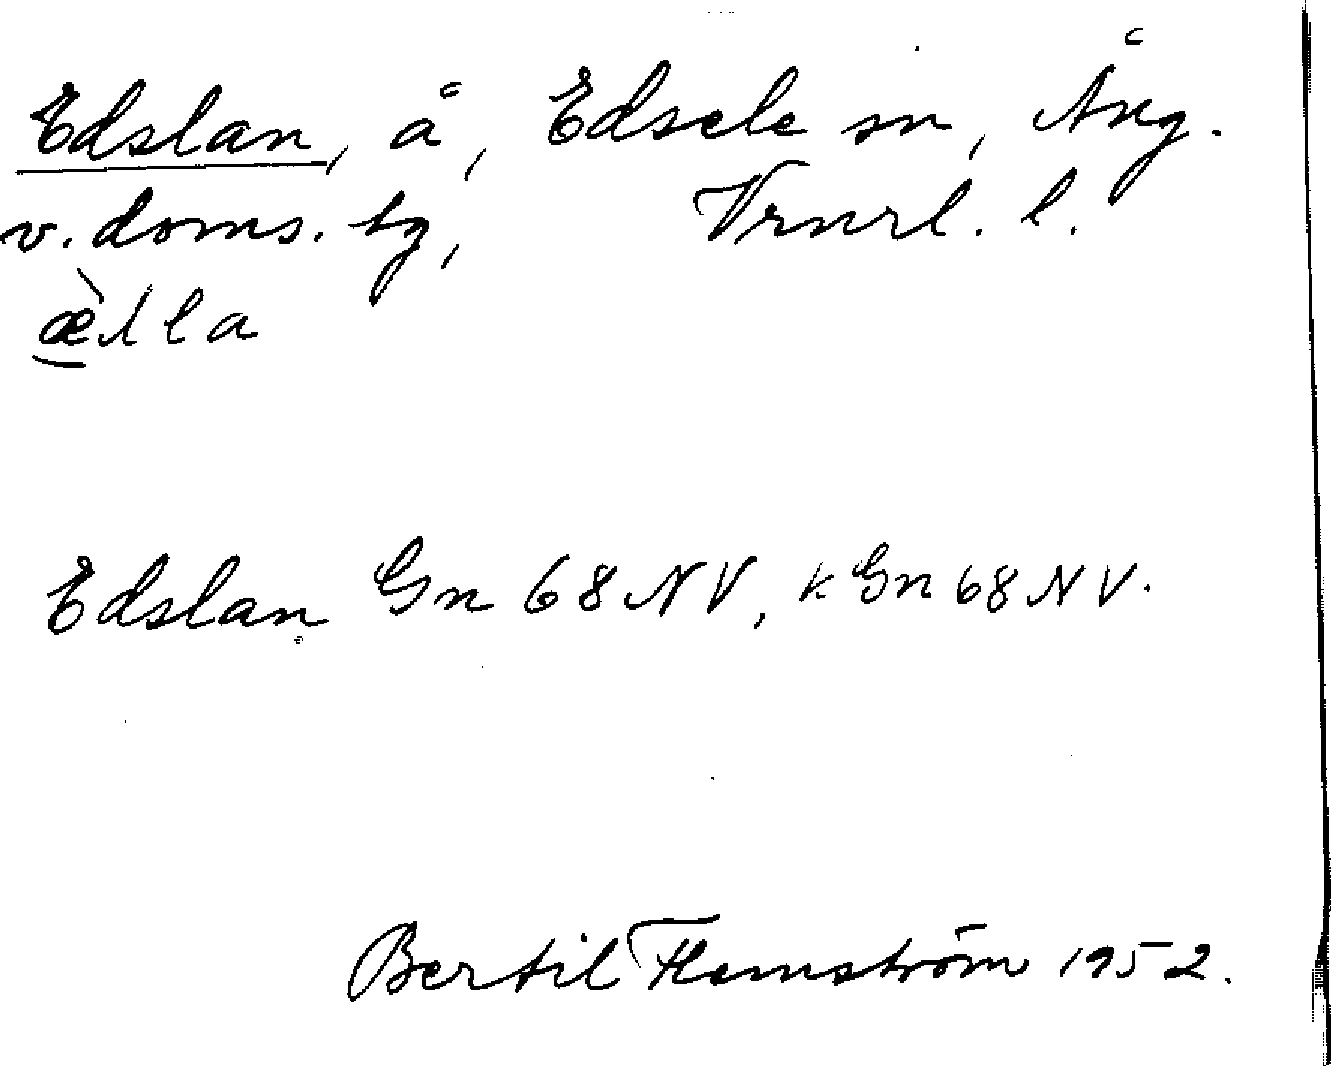 Edslan, å, Edsele sn, Ång.
v. doms. tg, Vrnrl. l.
Edslan Gn 68 NV, k Gn 68 NV.
Bertil Flemström 1952.